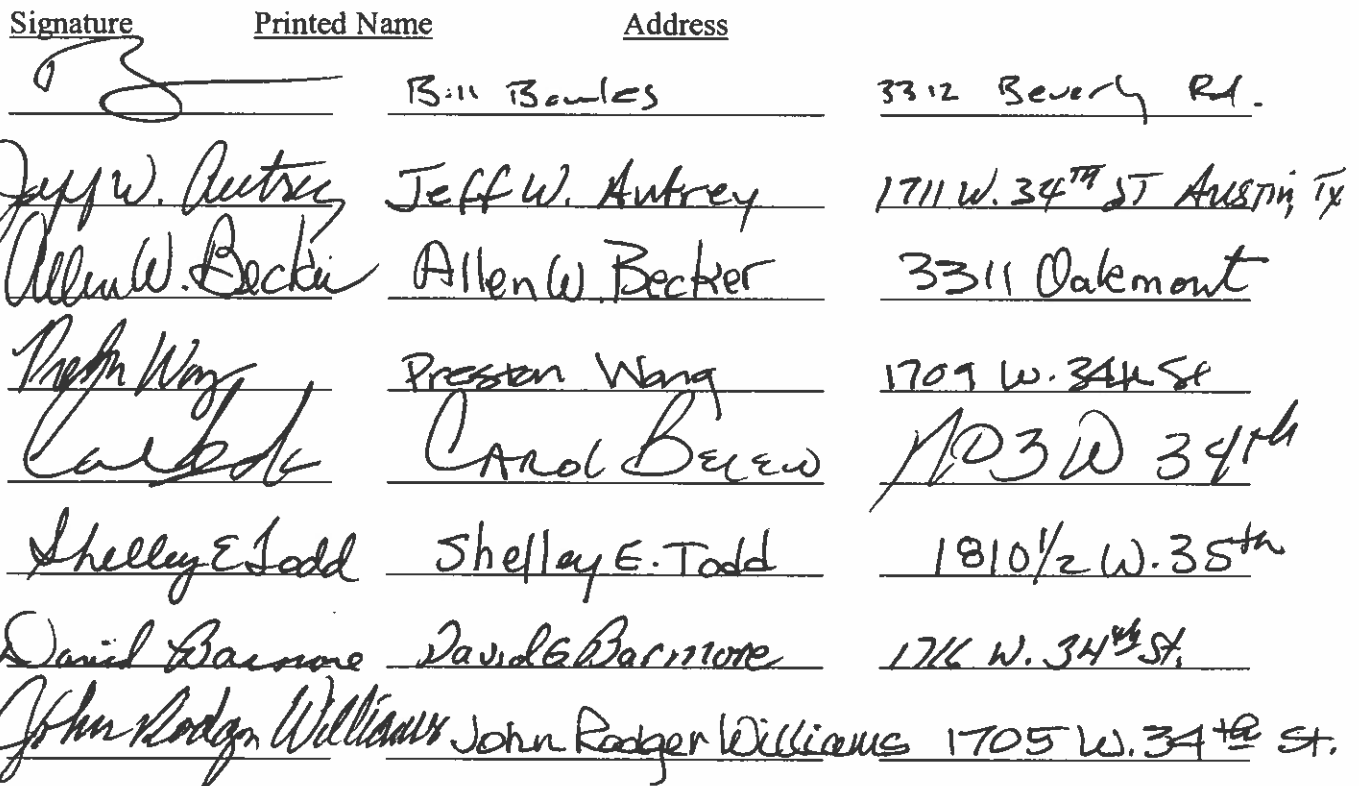 Signature Printed Name Address
Bill Bowles 3312 Beverly Rd.
Jeff W. Autrey Jeff W. Autrey 1711 W. 34TH ST Austin, TX
Allen W. Becker Allen W. Becker 3311 Oakmont
Preston Wang Preston Wang 1709 W. 34th St
Carol Belew 1703 W 34th
Shelley E Todd Shelley E. Todd 1810 1/2 W. 35th
David Barmore David G Barmore 1716 W. 34th St.
John Rodger Williams John Rodger Williams 1705 W. 34th St.